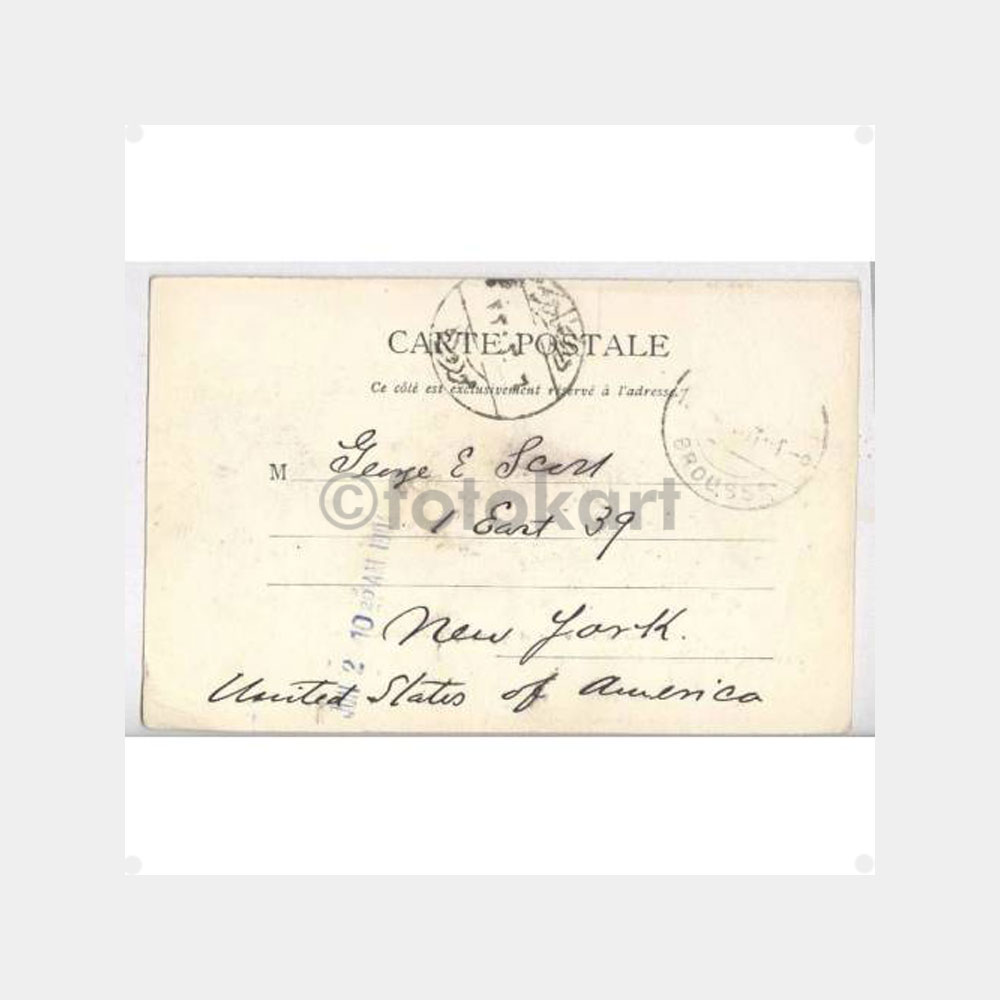 CARTE POSTALE
Ce côté est exclusivement réservé à l'adresse.
BROUSSE
M George E Scott
©fotokart
1 East 39
New York.
United States of America
JUN 2 10 20 AM